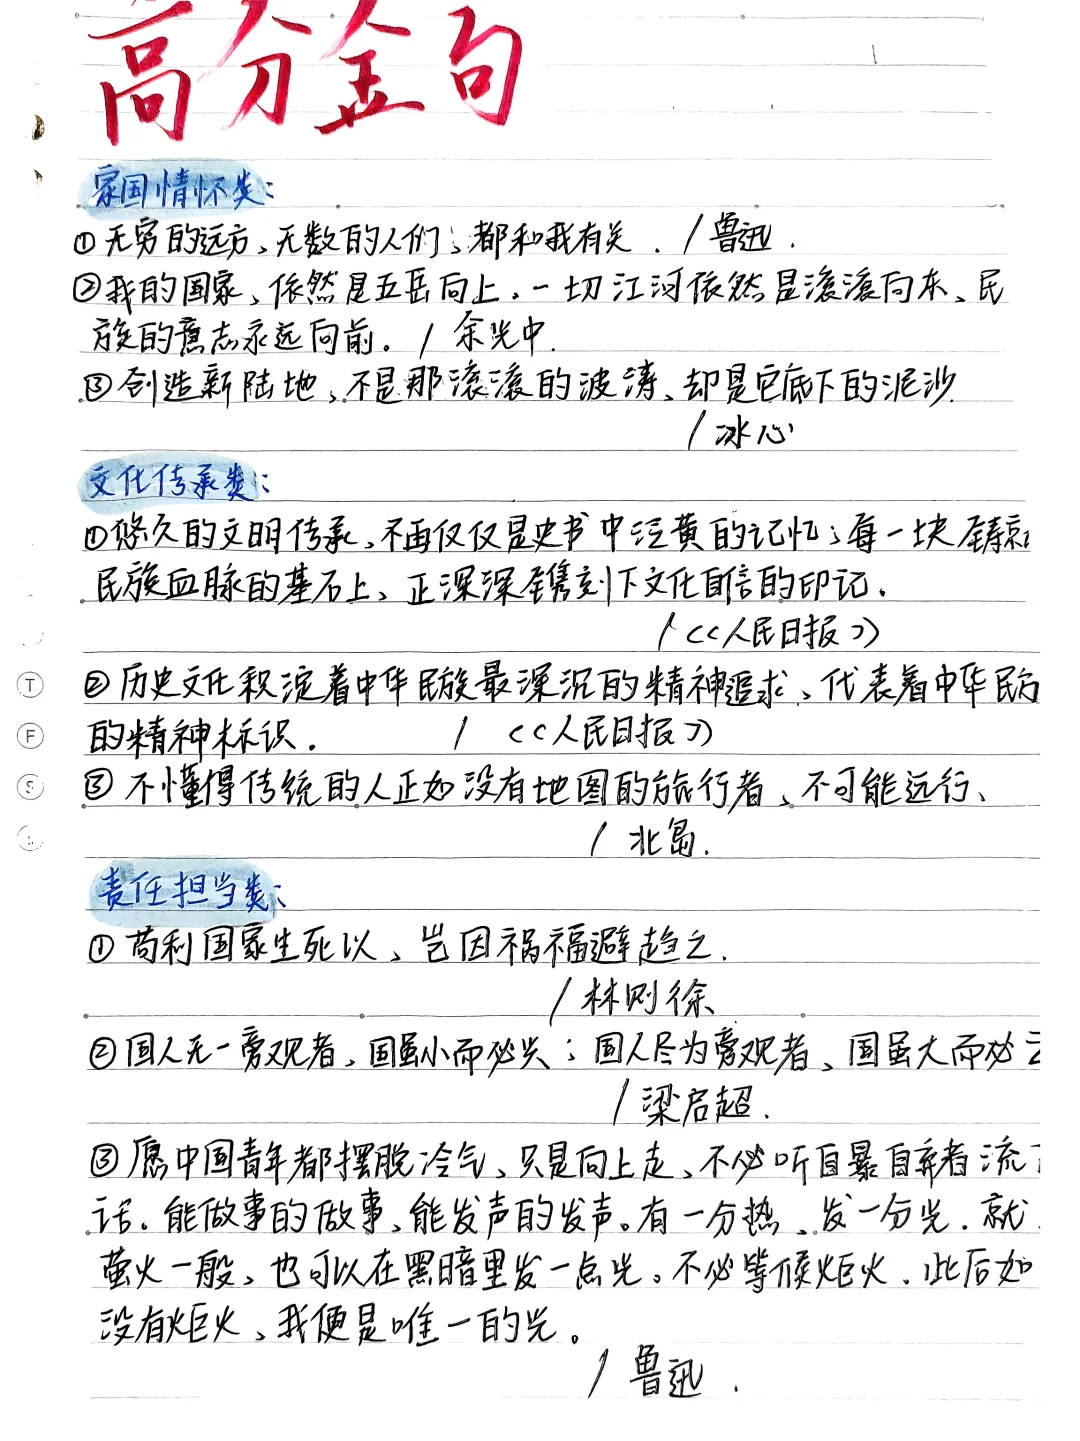 高分金句
家国情怀类:
①无穷的远方、无数的人们、都和我有关. /鲁迅.
②我的国家、依然是五岳向上、一切江河依然是滚滚向东、民
族的意志永远向前. /余光中.
③创造新陆地、不是那滚滚的波涛、却是它底下的泥沙.
/冰心
文化传承类:
①悠久的文明传承、不再仅仅是史书中泛黄的记忆;每一块铸就
民族血脉的基石上、正深深镌刻下文化自信的印记.
/<<人民日报>>
T
②历史文化积淀着中华民族最深沉的精神追求、代表着中华民
F
的精神标识. / <<人民日报>>
S
③不懂得传统的人正如没有地图的旅行者、不可能远行、
/北岛.
责任担当类:
①苟利国家生死以、岂因祸福避趋之.
/林则徐
②国人无一旁观者,国虽小而必兴;国人尽为旁观者、国虽大而必
/梁启超.
③愿中国青年都摆脱冷气、只是向上走、不必听自暴自弃者流
话.能做事的做事、能发声的发声。有一分热、发一分光.就
萤火一般、也可以在黑暗里发一点光。不必等候炬火.此后如
没有炬火、我便是唯一的光。
/鲁迅.